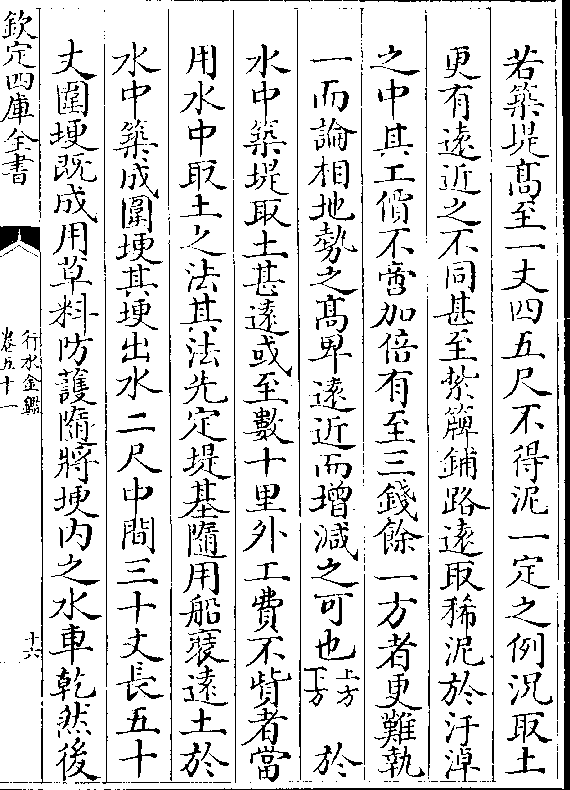 若築堤髙至一丈四五尺不得泥一定之例况取土
更有遠近之不同甚至紮簰鋪路遠取稀泥於汙淖
之中其工價不啻加倍有至三錢餘一方者更難執
一而論相地勢之髙卑遠近而增減之可也上方下方於
水中築堤取土甚遠或至數十里外工費不貲者當
用水中取土之法其法先定堤基隨用船裝遠土於
水中築成圍埂其埂出水二尺中間三十丈長五十
丈圍埂既成用草料防護隨將埂内之水車乾然後
欽定四庫全書
行水金鑑
卷五十一
十六